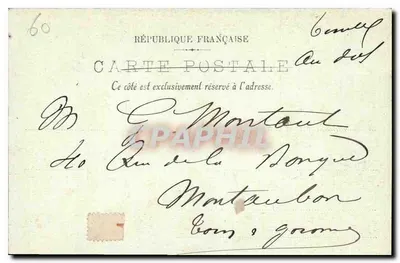 60
RÉPUBLIQUE FRANÇAISE
CARTE POSTALE
Ce côté est exclusivement réservé à l'adresse.
au dos
M G. Montaut
40 Rue de la Banque
Montauban
Tarn & Garonne